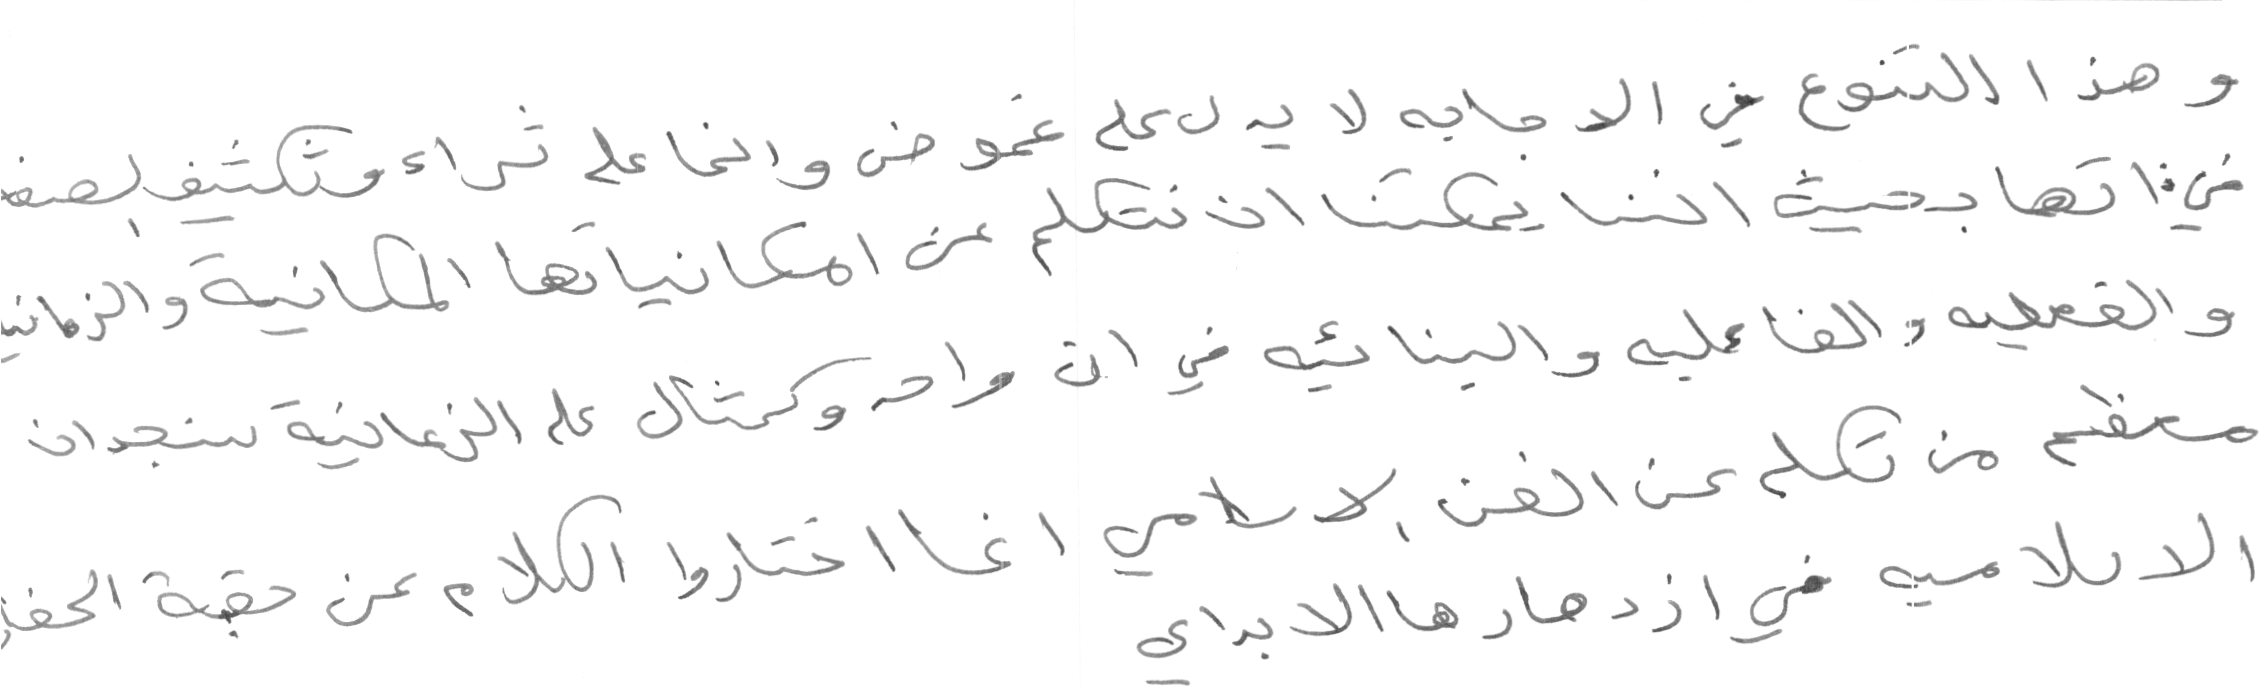 وهذا التنوع في الاجابه لا يدل على غموض وانما على ثراء وتكثيف
في ذاتها بحيث اننا يمكننا ان نتكلم عن امكانياتها المكانية والزمانيه
والفعليه والفاعليه والبنائيه في ان واحد وكمثال على الزمانية سنجد ان
معظم من تكلم عن الفن الاسلامي انما اختاروا الكلام عن حقبة
الاسلاميه في ازدهارها الابداي